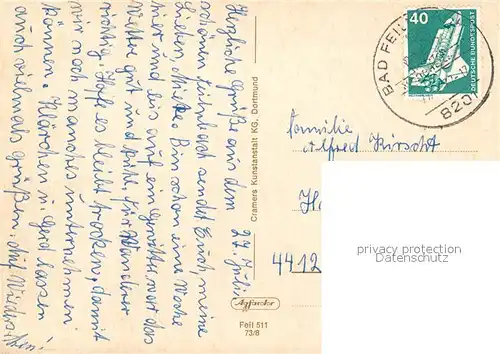 Herzliche Grüße aus dem
27. Juli
schönen sendet Euch, meine
Lieben, Bin schon eine Woche
hier und bis auf ein Gewitter war das
Wetter gut und
Hoffe es bleibt trocken, damit
wir noch manches unternehmen
können. Klärchen u. Gerd lassen
auch vielmals grüßen. Auf Wiedersehen
Cramers Kunstanstalt KG, Dortmund
Agfacolor
Feil 511
73/8
40
DEUTSCHE BUNDESPOST
BAD FEIL
8201
Familie
Alfred Hirscht
4412
privacy protection
Datenschutz